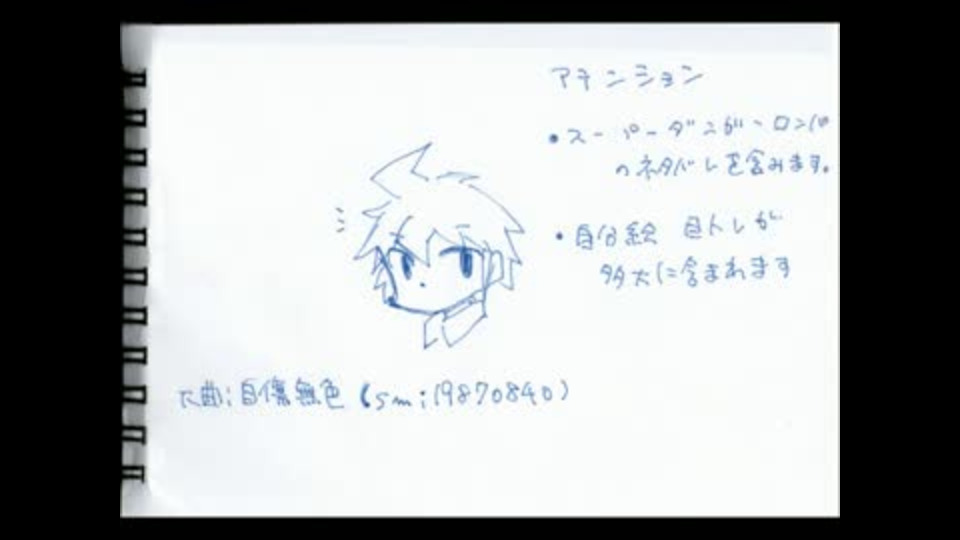 アテンション
•スーパーダンガンロンパ
のネタバレを含みます。
•自分絵 自トレが
多大に含まれます
元曲:自傷無色(sm19870840)